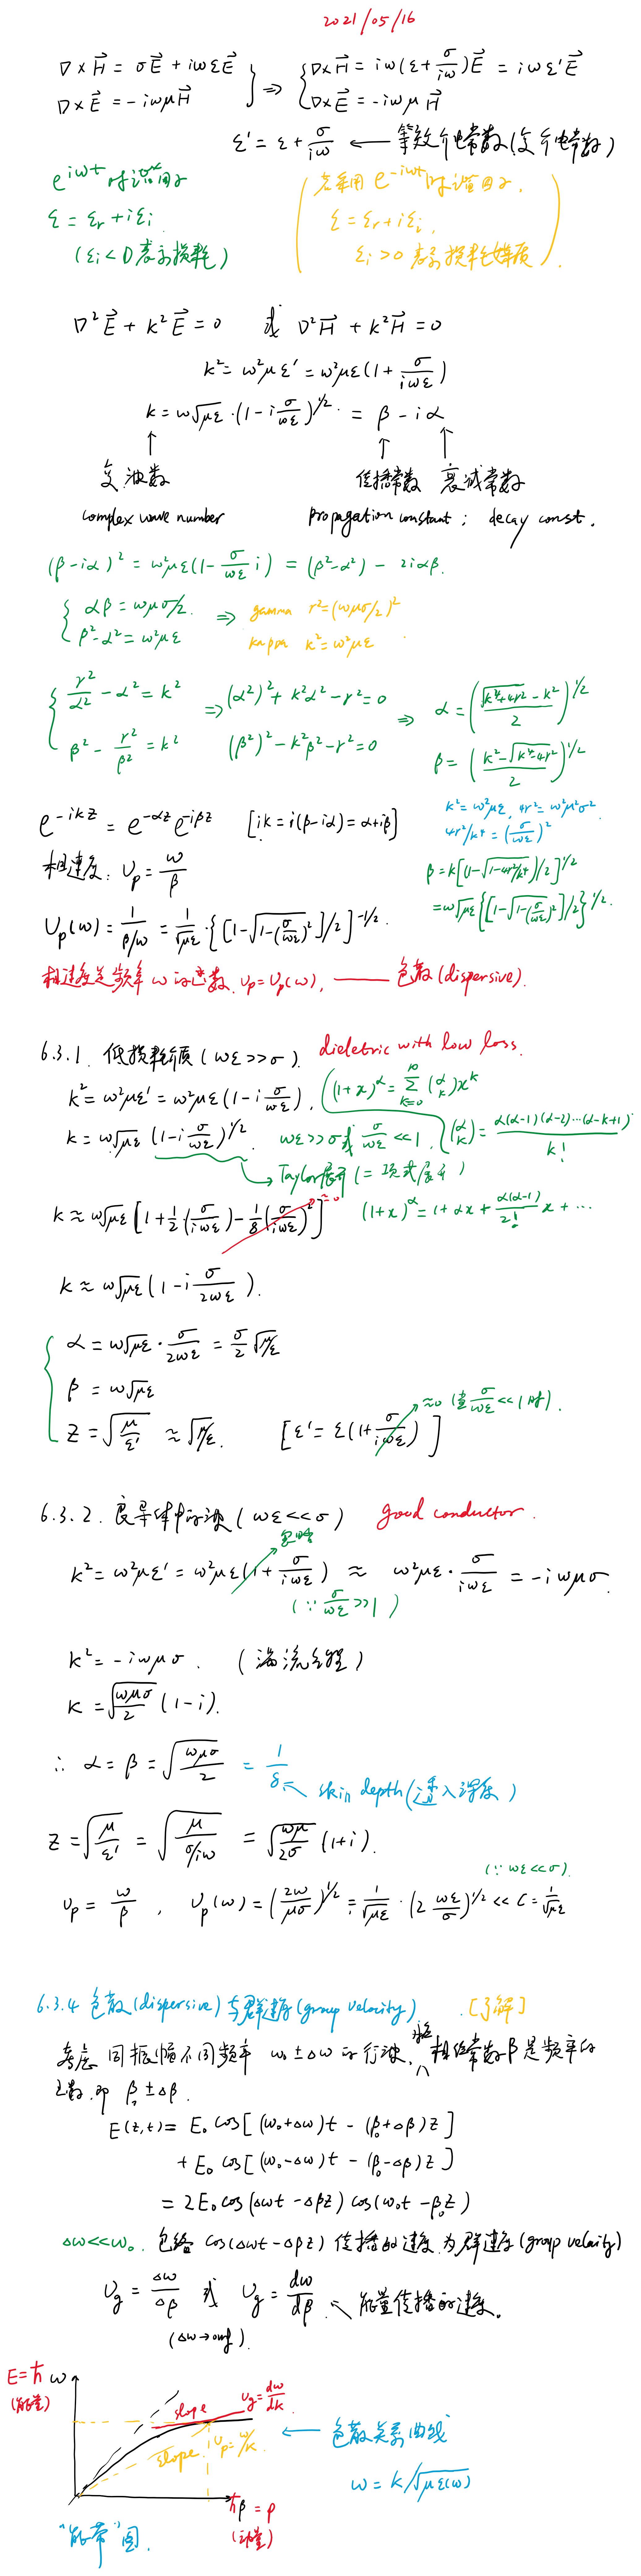 2021/05/16
∇×H⃗ = σE⃗ + iωεE⃗ } ⇒ { ∇×H⃗ = iω(ε+σ/iω)E⃗ = iωε'E⃗
∇×E⃗ = -iωμH⃗ } { ∇×E⃗ = -iωμH⃗
ε' = ε + σ/iω ← 等效介电常数(复介电常数)
e^{iωt} 时谐因子
ε = εr + iεi
(εi < 0 表示损耗)
(若采用 e^{-iωt} 时谐因子.
ε = εr + iεi,
εi > 0 表示损耗媒质).
∇²E⃗ + k²E⃗ = 0 或 ∇²H⃗ + k²H⃗ = 0
k² = ω²με' = ω²με(1 + σ/iωε)
k = ω√με · (1 - i σ/ωε)^{1/2} = β - iα
↑ ↑ ↑
复波数 传播常数 衰减常数
complex wave number propagation constant ; decay const.
(β-iα)² = ω²με(1 - σ/ωε i) = (β²-α²) - 2iαβ.
{ αβ = ωμσ/2. ⇒ gamma r² = (ωμσ/2)²
{ β²-α² = ω²με kappa k² = ω²με
{ r²/α² - α² = k² ⇒ (α²)² + k²α² - r² = 0 ⇒ α = ((√(k⁴+4r²) - k²)/2)^{1/2}
{ β² - r²/β² = k² (β²)² - k²β² - r² = 0 β = ((k² - √(k⁴-4r²))/2)^{1/2}
k² = ω²με, 4r² = ω²μ²σ²
4r²/k⁴ = (σ/ωε)²
e^{-ikz} = e^{-αz} e^{-iβz} [ik = i(β-iα) = α+iβ]
相速度: Up = ω/β
β = k[(1-√(1-4r²/k⁴))/2]^{1/2}
= ω√με {[1-√(1-(σ/ωε)²)]/2}^{1/2}.
Up(ω) = 1/(β/ω) = 1/√με · {[1-√(1-(σ/ωε)²)]/2}^{-1/2}.
相速度是频率 ω 的函数. Up = Up(ω). —— 色散(dispersive).
6.3.1. 低损耗介质 (ωε>>σ). dieletric with low loss.
k² = ω²με' = ω²με(1 - i σ/ωε).
(1+x)^α = Σ_{k=0}^{∞} (α k) x^k
k = ω√με (1 - i σ/ωε)^{1/2}. ωε>>σ 或 σ/ωε <<1.
(α k) = α(α-1)(α-2)…(α-k+1)/k!
→ Taylor展开 (二项式展开)
k ≈ ω√με [1 + 1/2 (σ/iωε) - 1/8 (σ/iωε)²] ≈0
(1+x)^α = 1 + αx + α(α-1)/2! x + …
k ≈ ω√με (1 - i σ/2ωε).
α = ω√με · σ/2ωε = σ/2 √μ/ε
β = ω√με
Z = √(μ/ε') ≈ √μ/ε. [ε' = ε(1 + σ/iωε)] ≈0 (当 σ/ωε <<1 时).
6.3.2. 良导体中的波 (ωε<<σ) good conductor.
k² = ω²με' = ω²με(1 + σ/iωε) ≈ ω²με · σ/iωε = -iωμσ.
忽略
(∵ σ/ωε >>1)
k² = -iωμσ. (涡流方程)
k = √(ωμσ/2) (1-i).
∴ α = β = √(ωμσ/2) = 1/δ ← skin depth (透入深度)
Z = √(μ/ε') = √(μ/(σ/iω)) = √(ωμ/2σ) (1+i).
Up = ω/β , Up(ω) = (2ω/μσ)^{1/2} = 1/√με · (2 ωε/σ)^{1/2} << C = 1/√με
(∵ ωε<<σ).
6.3.4 色散(dispersive)与群速度(group velocity) . [了解]
考虑 同振幅不同频率 ω₀±Δω 的行波, 相位常数 β 是频率的
函数. 即 β₀±Δβ.
E(z,t) = E₀ cos[(ω₀+Δω)t - (β₀+Δβ)z]
+ E₀ cos[(ω₀-Δω)t - (β₀-Δβ)z]
= 2E₀ cos(Δωt - Δβz) cos(ω₀t - β₀z)
Δω<<ω₀. 包络 cos(Δωt - Δβz) 传播的速度为群速度(group velocity)
Ug = Δω/Δβ 或 Ug = dω/dβ ← 能量传播的速度.
E = ħω
(能量)
slope Ug = dω/dk
slope Up = ω/k
← 色散关系曲线
ω = k/√με(ω)
ħβ = p
(动量)
"能带"图.